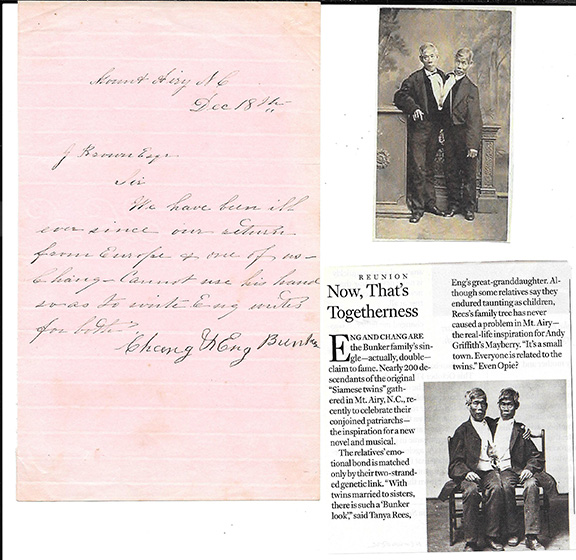 Mount Airy N.C
Dec 18th
J Brown Esqr
Sir
We have been ill
ever since our return
from Europe & one of us-
Chang- Cannot use his hand
so as to write Eng writes
for both
Chang & Eng Bunker
REUNION
Now, That's
Togetherness
ENG AND CHANG ARE
the Bunker family's sin-
gle—actually, double—
claim to fame. Nearly 200 de-
scendants of the original
"Siamese twins" gath-
ered in Mt. Airy, N.C., re-
cently to celebrate their
conjoined patriarchs—
the inspiration for a new
novel and musical.
The relatives' emo-
tional bond is matched
only by their two-strand-
ed genetic link. "With
twins married to sisters,
there is such a 'Bunker
look'," said Tanya Rees,
Eng's great-granddaughter. Al-
though some relatives say they
endured taunting as children,
Rees's family tree has never
caused a problem in Mt. Airy—
the real-life inspiration for Andy
Griffith's Mayberry. "It's a small
town. Everyone is related to the
twins." Even Opie?